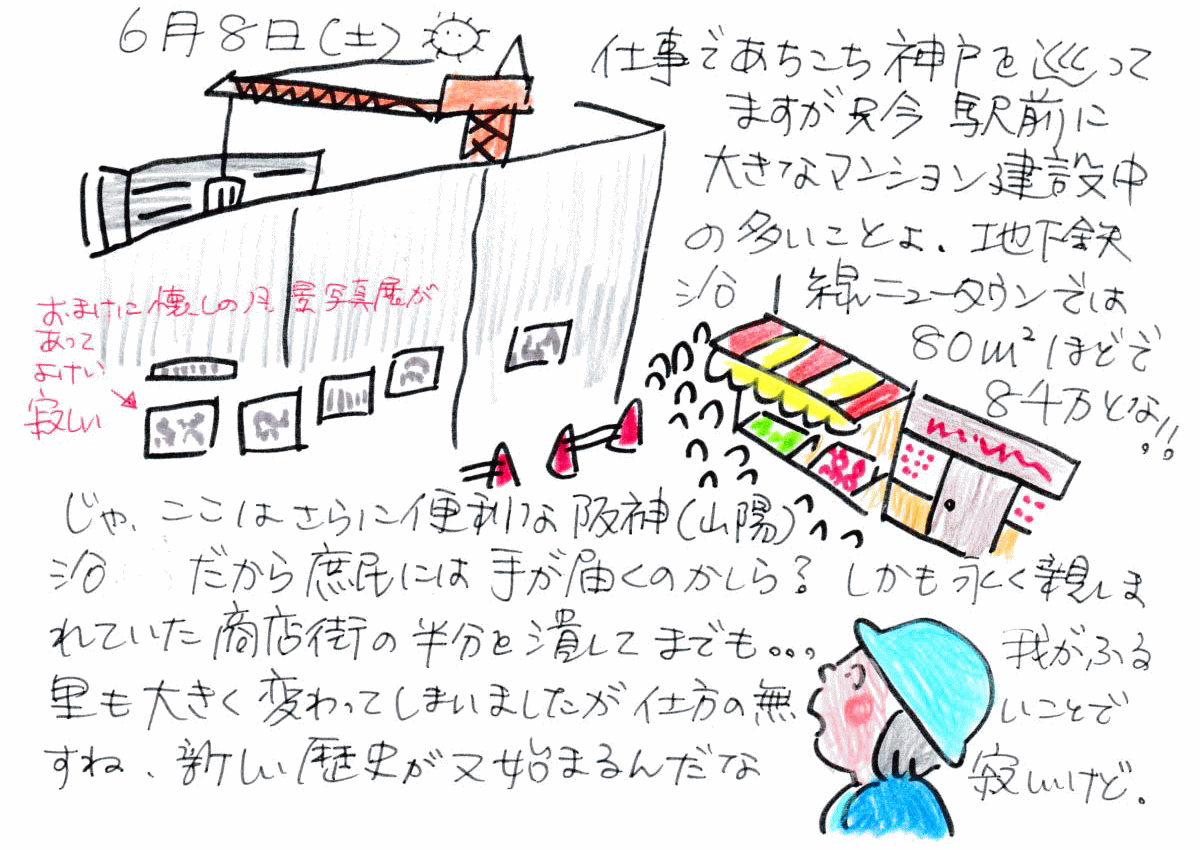 6月8日(土)
仕事であちこち神戸を巡って
ますが只今 駅前に
大きなマンション建設中
の多いことよ. 地下鉄
沿線ニュータウンでは
80m²ほどで
8千万とな!!
おまけに懐しの風景写真展が
あって
よけい
寂しい
じゃ、ここはさらに便利な阪神(山陽)
沿 だから庶民には手が届くのかしら? しかも永く親しま
れていた商店街の半分を潰してまでも... 我がふる
里も大きく変わってしまいましたが仕方の無いことで
すね、新しい歴史が又始まるんだな 寂しいけど.